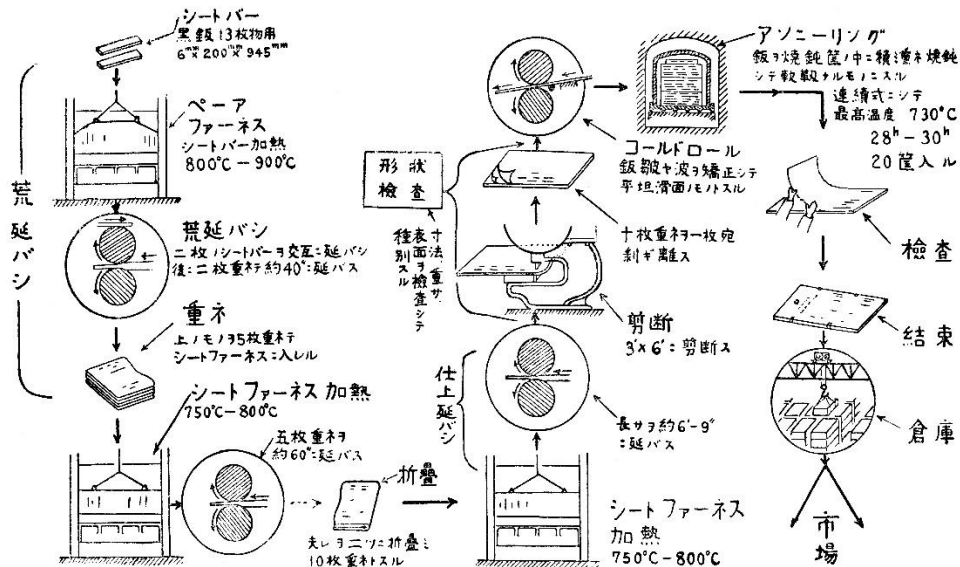 シートバー
黒鈑13枚物用
6mm×200mm×945mm
ペーア
ファーネス
シートバー加熱
800°C−900°C
荒延バシ
荒延バシ
二枚ノシートバーヲ交互ニ延バシ
後ニ二枚重ネテ約40"ニ延バス
重ネ
上ノモノヲ5枚重ネテ
シートファーネスニ入レル
シートファーネス加熱
750°C−800°C
五枚重ネヲ
約60"ニ延バス
折疊
夫レヲ二ツニ折疊ミ
10枚重ネトスル
シートファーネス
加熱
750°C−800°C
仕上延バシ
長サヲ約6'−9"
ニ延バス
剪断
3'×6'ニ剪断ス
十枚重ネヲ一枚宛
剥ギ離ス
形状
檢査
寸法、重サ、
表面ヲ檢査シテ
種別スル
コールドロール
鈑皺ヤ波ヲ矯正シテ
平坦滑面ノモノトスル
アンニーリング
鈑ヲ焼鈍筐ノ中ニ積ミ重ネ焼鈍
シテ軟靱ナルモノニスル
連續式ニシテ
最高温度 730°C
28h−30h
20筐入ル
檢査
結束
倉庫
市場